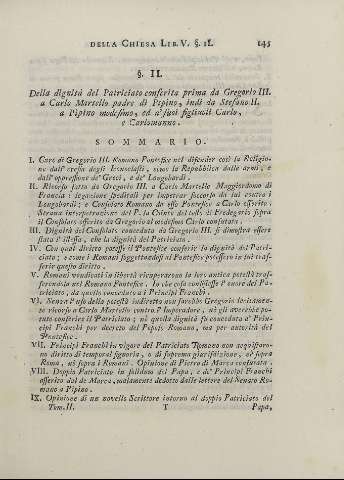 DELLA CHIESA LIB. V. §. II. 145
§. II.
Della dignità del Patriciato conferita prima da Gregorio III.
a Carlo Martello padre di Pipino, indi da Stefano II.
a Pipino medesimo, ed a' suoi figliuoli Carlo,
e Carlomanno.
SOMMARIO.
I. Cure di Gregorio III. Romano Pontefice nel difender così la Religio-
ne dall' eresia degli Iconoclasti, come la Repubblica dalle armi, e
dall' oppressione de' Greci, e de' Longobardi.
II. Ricorso fatto da Gregorio III. a Carlo Martello Maggiordomo di
Francia: legazione speditagli per impetrar soccorso da lui contra i
Longobardi; e Consolato Romano da esso Pontefice a Carlo offerito.
Strana interpretazione del P. le Cointe del testo di Fredegario sopra
il Consolato offerito da Gregorio al medesimo Carlo confutata.
III. Dignità del Consolato conceduta da Gregorio III. si dimostra essere
stata l' istessa, che la dignità del Patriciato.
IV. Con qual diritto potesse il Pontefice conferir la dignità del Patri-
ciato; e come i Romani soggettandosi al Pontefice potessero in lui tras-
ferir questo diritto.
V. Romani vendicati in libertà ricuperarono la loro antica potestà tras-
ferendola nel Romano Pontefice. In che cosa consistesse l' onore del Pa-
triciato, da questo conceduto a i Principi Franchi.
VI. Senza l' uso della potestà indiretta non sarebbe Gregorio lecitamen-
te ricorso a Carlo Martello contro l' Imperadore, nè gli avrebbe po-
tuto conferire il Patriciato; nè quella dignità fu conceduta a' Prin-
cipi Franchi per decreto del Popolo Romano, ma per autorità del
Pontefice.
VII. Principi Franchi in vigore del Patriciato Romano non acquistaro-
no diritto di temporal signoria, o di suprema giurisdizione, nè sopra
Roma, nè sopra i Romani. Opinione di Pietro di Marca confutata.
VIII. Doppio Patriciato in solidum del Papa, e de' Principi Franchi
asserito dal de Marca, malamente dedotto dalle lettere del Senato Ro-
mano a Pipino.
IX. Opinione di un novello Scrittore intorno al doppio Patriciato del
Tom. II. T Papa,